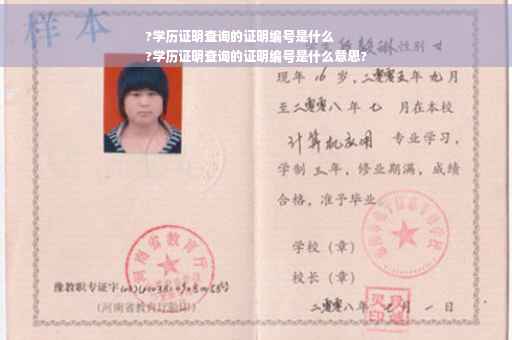 样本
?学历证明查询的证明编号是什么
?学历证明查询的证明编号是什么意思?
性别 女
现年 16 岁,二零零五年九月
至二零零八年七 月在本校
计算机应用 专业学习,
学制 三年,修业期满,成绩
合格,准予毕业
学校(章)
校长(章)
二零零八年 月一日
河南省教育厅
豫教职专证字
(河南省教育厅验印)